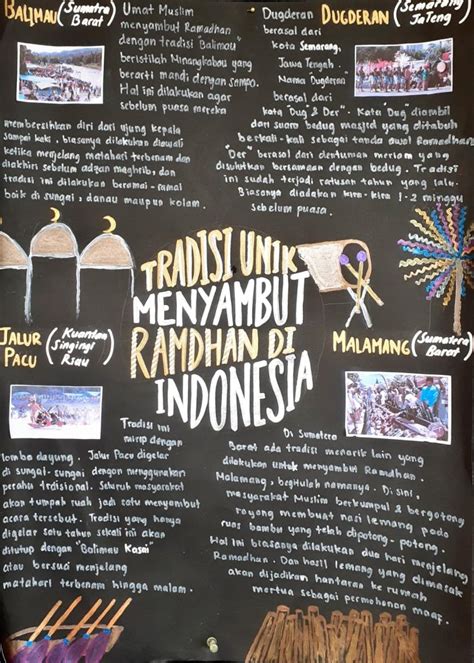 BALIMAU (Sumatra Barat)
Umat Muslim
menyambut Ramadhan
dengan tradisi Balimau
beristilah Minangkabau yang
berarti mandi dengan sampo.
Hal ini dilakukan agar
sebelum puasa mereka
membersihkan diri dari ujung kepala
sampai kaki. biasanya dilakukan diawali
ketika menjelang matahari terbenam dan
diakhiri sebelum adzan maghrib. dan
tradisi ini dilakukan beramai-ramai
baik di sungai, danau maupun kolam.
DUGDERAN (Semarang JaTeng)
Dugderan
berasal dari
kota Semarang,
Jawa Tengah.
Nama Dugderan
berasal dari
kata "Dug & Der". Kata "Dug" diambil
dari suara bedug masjid yang ditabuh
berkali-kali sebagai tanda awal Ramadhan
"Der" berasal dari dentuman meriam yang
disulutkan bersamaan dengan bedug. Tradisi
ini sudah terjadi ratusan tahun yang lalu.
Biasanya diadakan kira-kira 1-2 minggu
sebelum puasa.
TRADISI UNIK
MENYAMBUT
RAMDHAN DI
INDONESIA
JALUR PACU (Kuantan Singingi Riau)
Tradisi ini
mirip dengan
lomba dayung. Jalur Pacu digelar
di sungai-sungai dengan menggunakan
perahu tradisional. Seluruh masyarakat
akan tumpah ruah jadi satu menyambut
acara tersebut. Tradisi yang hanya
digelar satu tahun sekali ini akan
ditutup dengan "Balimau Kasai
atau bersuci menjelang
matahari terbenam hingga malam.
MALAMANG (Sumatera Barat)
Di Sumatera
Barat ada tradisi menarik lain yang
dilakukan untuk menyambut Ramadhan.
Malamang, begitulah namanya. Di sini,
masyarakat Muslim berkumpul & bergotong
royong membuat nasi lemang pada
ruas bambu yang telah dipotong-potong.
Hal ini biasanya dilakukan dua hari menjelang
Ramadhan. Dan hasil lemang yang dimasak
akan dijadikan hantaran ke rumah
mertua sebagai permohonan maaf.